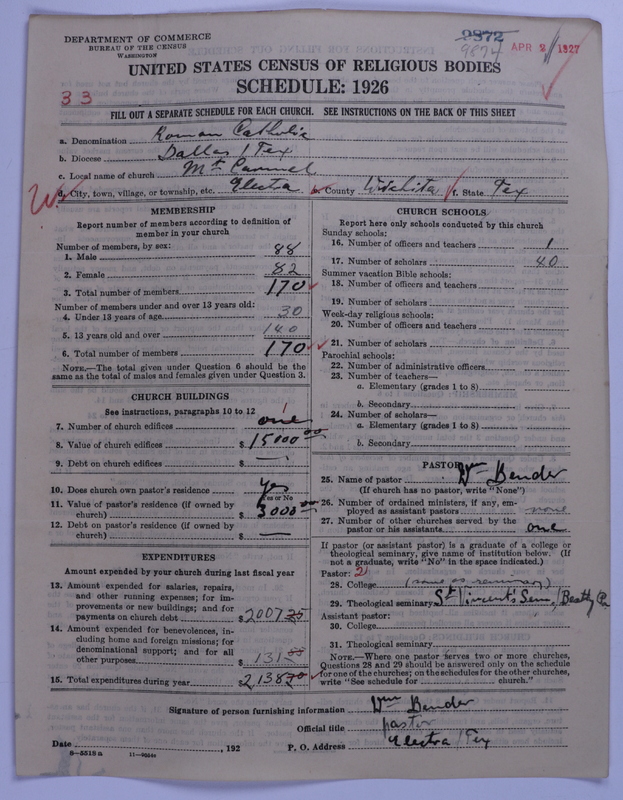 DEPARTMENT OF COMMERCE
BUREAU OF THE CENSUS
WASHINGTON
2872
9874
APR 2 1927
UNITED STATES CENSUS OF RELIGIOUS BODIES
SCHEDULE: 1926
33
FILL OUT A SEPARATE SCHEDULE FOR EACH CHURCH. SEE INSTRUCTIONS ON THE BACK OF THIS SHEET
a. Denomination Roman Catholic
b. Diocese Dallas / Tex
c. Local name of church Mt Carmel
d. City, town, village, or township, etc. Electa e. County Wichita f. State Tex
MEMBERSHIP
Report number of members according to definition of member in your church
Number of members, by sex:
1. Male 88
2. Female 82
3. Total number of members 170
Number of members under and over 13 years old:
4. Under 13 years of age 30
5. 13 years old and over 140
6. Total number of members 170
NOTE.—The total given under Question 6 should be the same as the total of males and females given under Question 3.
CHURCH BUILDINGS
See instructions, paragraphs 10 to 12
7. Number of church edifices one 1
8. Value of church edifices $ 15000 00
9. Debt on church edifices $ —
10. Does church own pastor's residence Yes
Yes or No
11. Value of pastor's residence (if owned by church) $ 3000 00
12. Debt on pastor's residence (if owned by church) $ —
EXPENDITURES
Amount expended by your church during last fiscal year
13. Amount expended for salaries, repairs, and other running expenses; for improvements or new buildings; and for payments on church debt $ 2007.75
14. Amount expended for benevolences, including home and foreign missions; for denominational support; and for all other purposes $ 131 00
15. Total expenditures during year $ 2138
CHURCH SCHOOLS
Report here only schools conducted by this church
Sunday schools:
16. Number of officers and teachers 1
17. Number of scholars 40
Summer vacation Bible schools:
18. Number of officers and teachers
19. Number of scholars
Week-day religious schools:
20. Number of officers and teachers
21. Number of scholars
Parochial schools:
22. Number of administrative officers
23. Number of teachers—
a. Elementary (grades 1 to 8)
b. Secondary
24. Number of scholars—
a. Elementary (grades 1 to 8)
b. Secondary
PASTOR
25. Name of pastor Wm Bender
(If church has no pastor, write "None")
26. Number of ordained ministers, if any, employed as assistant pastors none
27. Number of other churches served by the pastor or his assistants one
If pastor (or assistant pastor) is a graduate of a college or theological seminary, give name of institution below. (If not a graduate, write "No" in the space indicated.)
Pastor: 2
28. College (same as seminary)
29. Theological seminary St Vincent's Sem / Beatty Pa
Assistant pastor:
30. College
31. Theological seminary
NOTE.—Where one pastor serves two or more churches, Questions 28 and 29 should be answered only on the schedule for one of the churches; on the schedules for the other churches, write "See schedule for church."
Signature of person furnishing information Wm Bender
Official title pastor
Date , 192 P. O. Address Electra / Tex
8—5518 a